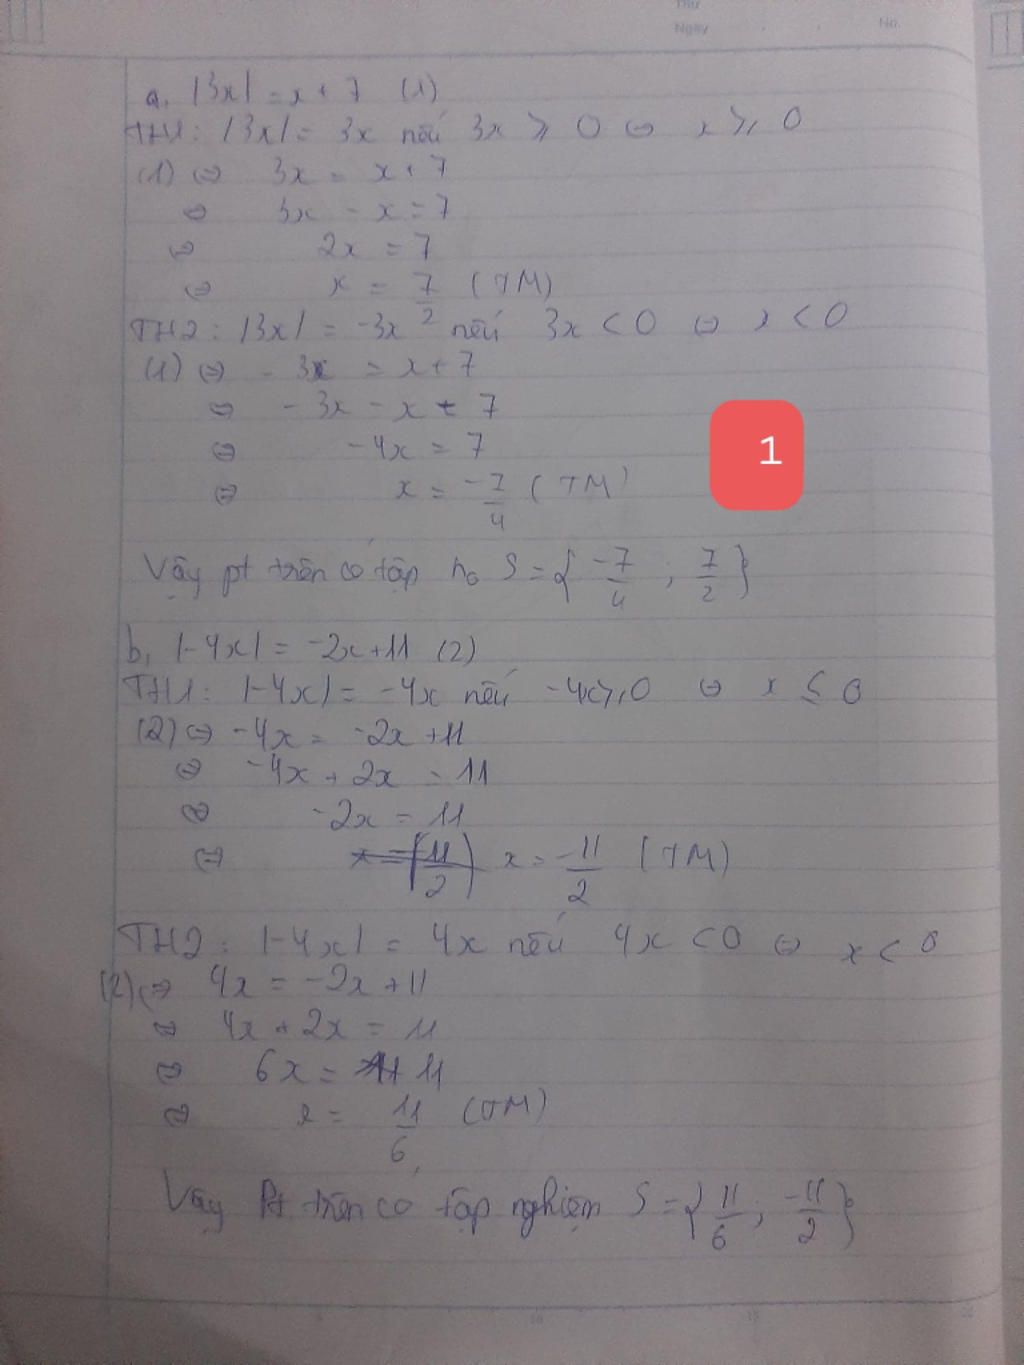 Thứ
Ngày
No.
a, |3x| = x + 7 (1)
TH1: |3x| = 3x nếu 3x ⩾ 0 ⇔ x ⩾ 0
(1) ⇔ 3x = x + 7
⇔ 3x - x = 7
⇔ 2x = 7
⇔ x = 7/2 (TM)
TH2: |3x| = -3x nếu 3x < 0 ⇔ x < 0
(1) ⇔ - 3x = x + 7
⇔ - 3x - x = 7
⇔ -4x = 7
⇔ x = -7/4 (TM)
1
Vậy pt trên có tập no S = { -7/4 ; 7/2 }
b, |-4x| = -2x + 11 (2)
TH1: |-4x| = -4x nếu -4x ⩾ 0 ⇔ x ≤ 0
(2) ⇔ -4x = -2x + 11
⇔ -4x + 2x = 11
⇔ -2x = 11
⇔ x = -11/2 (TM)
TH2: |-4x| = 4x nếu 4x < 0 ⇔ x < 0
(2) ⇔ 4x = -2x + 11
⇔ 4x + 2x = 11
⇔ 6x = 11
⇔ x = 11/6 (TM)
Vậy Pt trên có tập nghiệm S = { 11/6 ; -11/2 }